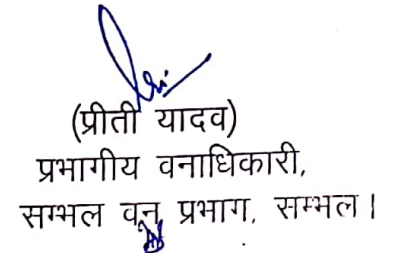 (प्रीती यादव)
प्रभागीय वनाधिकारी,
सम्भल वन प्रभाग, सम्भल।